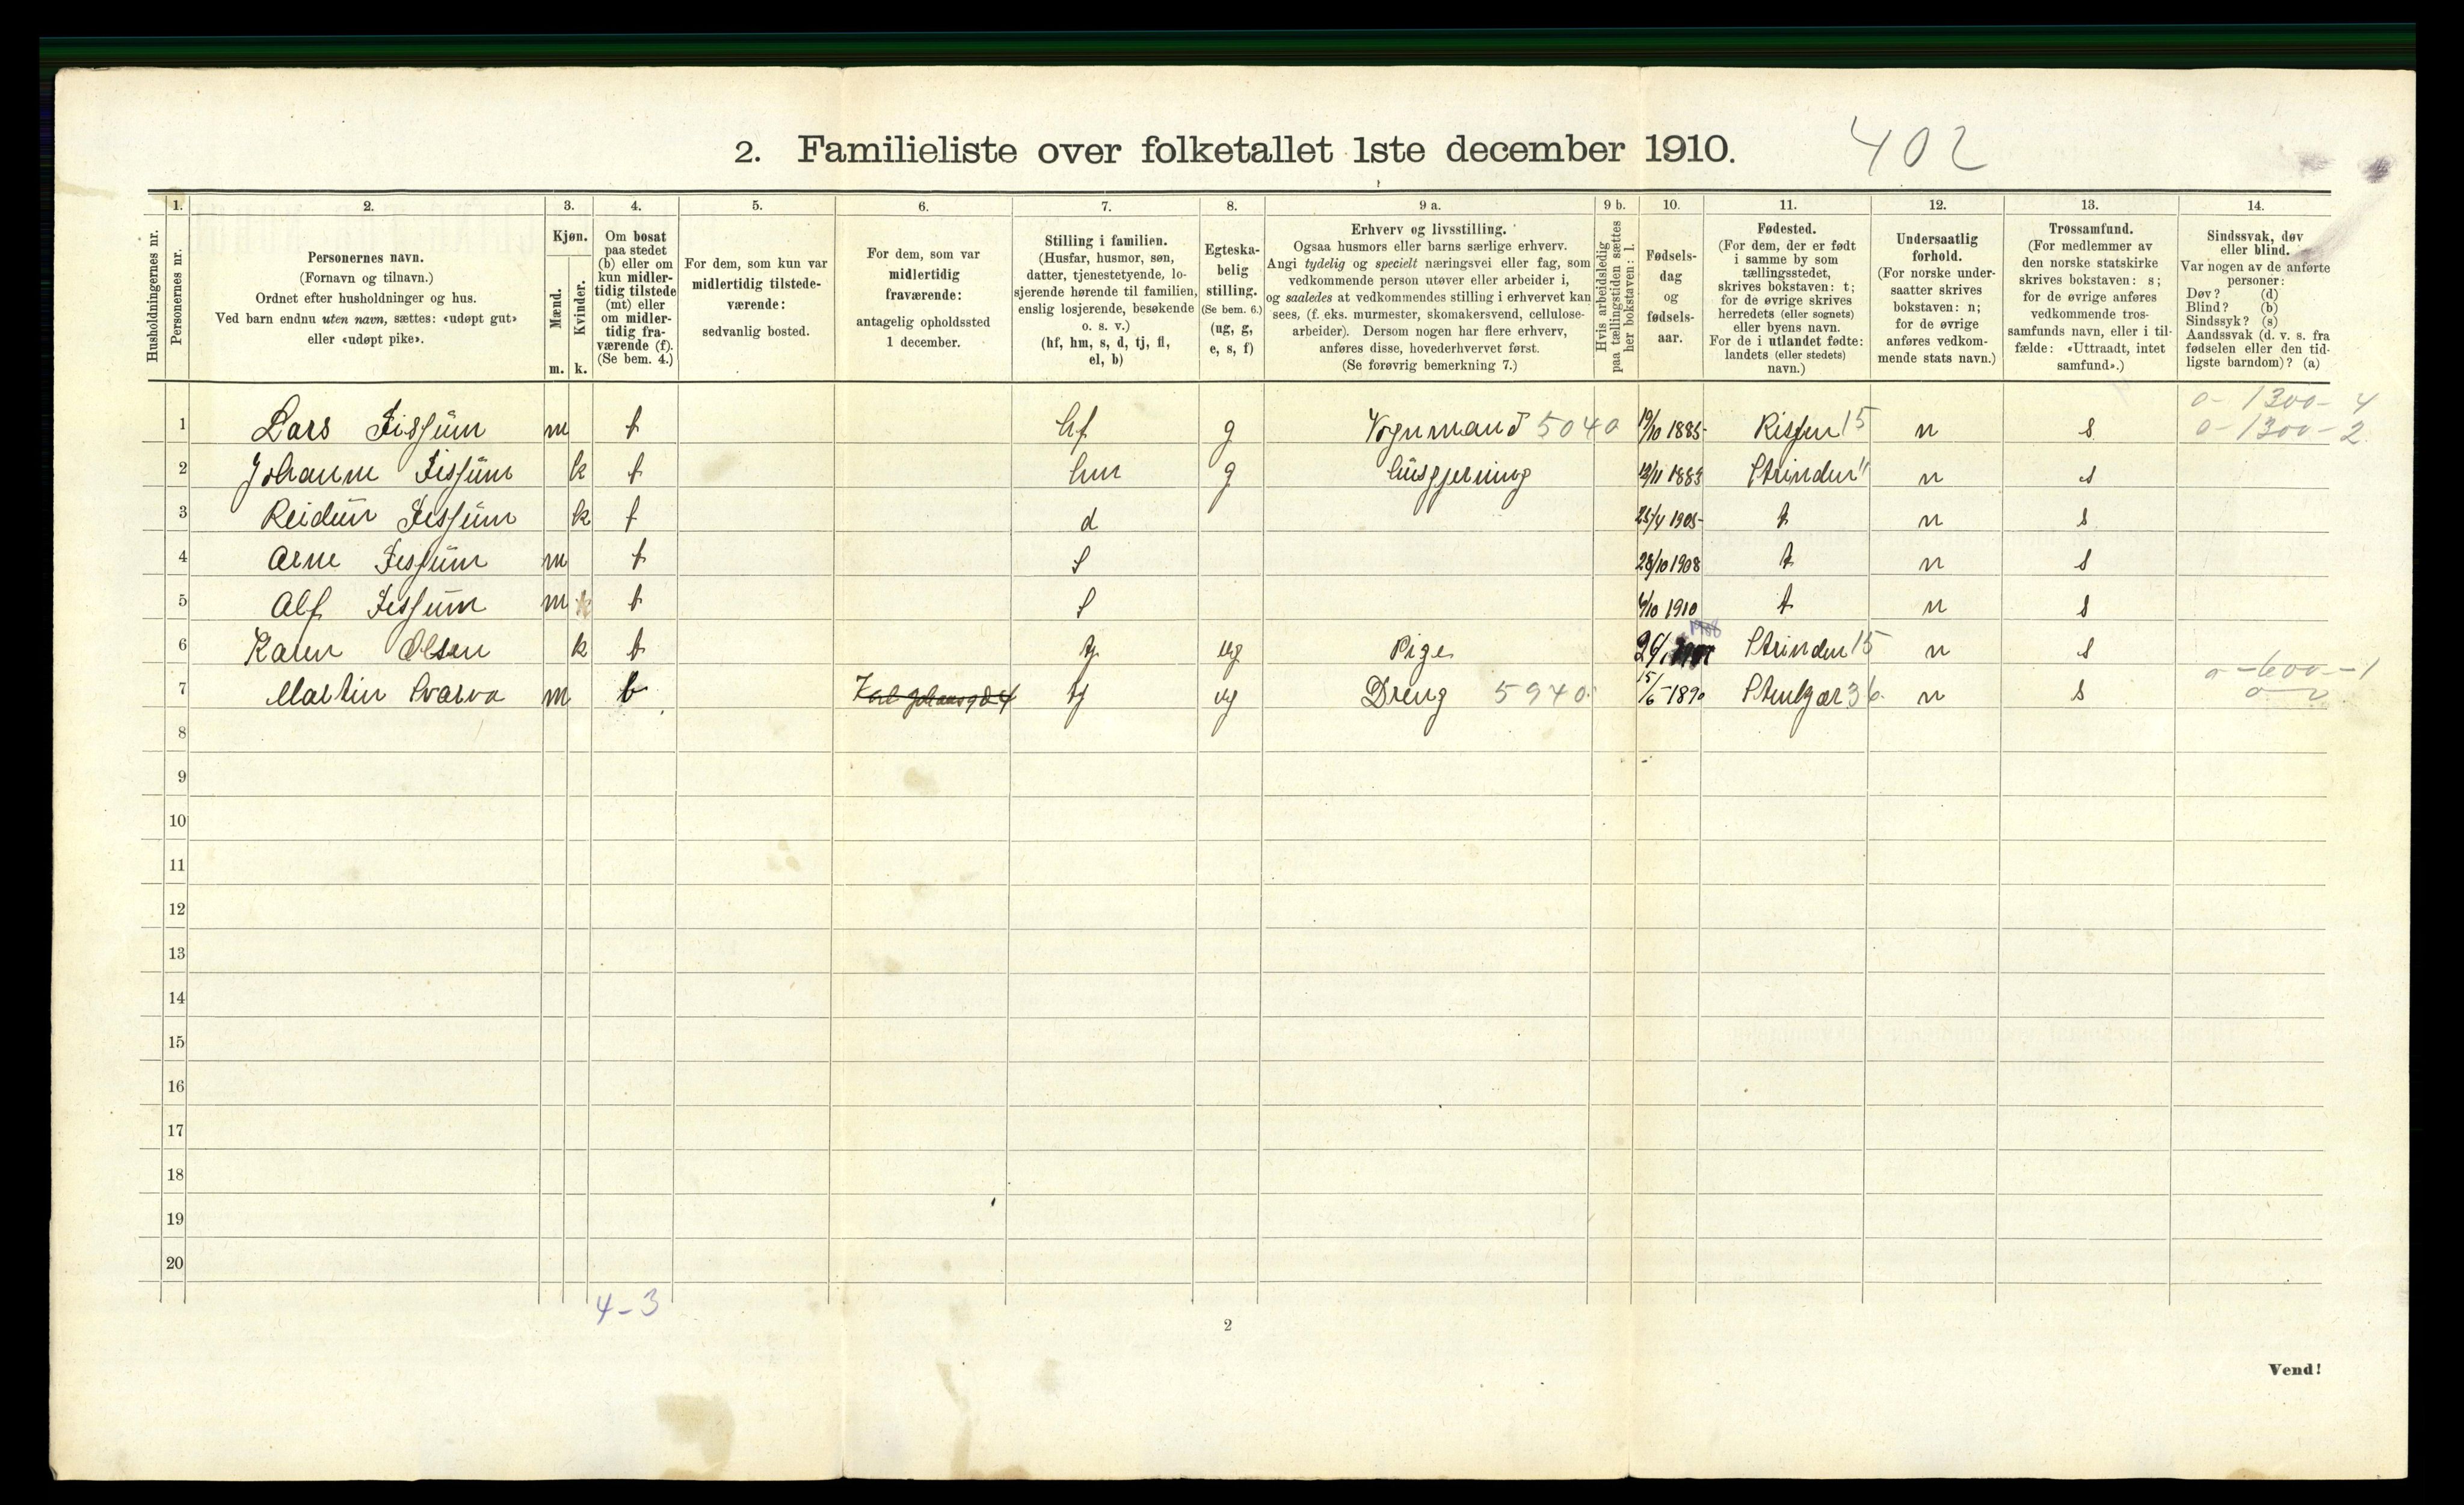 2. Familieliste over folketallet 1ste december 1910. 402
Husholdningernes nr.
1. Personernes nr.
2. Personernes navn.
(Fornavn og tilnavn.)
Ordnet efter husholdninger og hus.
Ved barn endnu uten navn, sættes: «udøpt gut»
eller «udøpt pike».
3. Kjøn.
Mænd. m.
Kvinder. k.
4. Om bosat
paa stedet
(b) eller om
kun midler-
tidig tilstede
(mt) eller
om midler-
tidig fra-
værende (f).
(Se bem. 4.)
5. For dem, som kun var
midlertidig tilstede-
værende:
sedvanlig bosted.
6. For dem, som var
midlertidig
fraværende:
antagelig opholdssted
1 december.
7. Stilling i familien.
(Husfar, husmor, søn,
datter, tjenestetyende, lo-
sjerende hørende til familien,
enslig losjerende, besøkende
o. s. v.)
(hf, hm, s, d, tj, fl,
el, b)
8. Egteska-
belig
stilling.
(Se bem. 6.)
(ug, g,
e, s, f)
9 a. Erhverv og livsstilling.
Ogsaa husmors eller barns særlige erhverv.
Angi tydelig og specielt næringsvei eller fag, som
vedkommende person utøver eller arbeider i,
og saaledes at vedkommendes stilling i erhvervet kan
sees, (f. eks. murmester, skomakersvend, cellulose-
arbeider). Dersom nogen har flere erhverv,
anføres disse, hovederhvervet først.
(Se forøvrig bemerkning 7.)
9 b. Hvis arbeidsledig
paa tællingstiden sættes
her bokstaven: l.
10. Fødsels-
dag
og
fødsels-
aar.
11. Fødested.
(For dem, der er født
i samme by som
tællingsstedet,
skrives bokstaven: t;
for de øvrige skrives
herredets (eller sognets)
eller byens navn.
For de i utlandet fødte:
landets (eller stedets)
navn.)
12. Undersaatlig
forhold.
(For norske under-
saatter skrives
bokstaven: n;
for de øvrige
anføres vedkom-
mende stats navn.)
13. Trossamfund.
(For medlemmer av
den norske statskirke
skrives bokstaven: s;
for de øvrige anføres
vedkommende tros-
samfunds navn, eller i til-
fælde: «Uttraadt, intet
samfund».)
14. Sindssvak, døv
eller blind.
Var nogen av de anførte
personer:
Døv? (d)
Blind? (b)
Sindssyk? (s)
Aandssvak (d. v. s. fra
fødselen eller den tid-
ligste barndom)? (a)
o - 1300 - 4
1 Lars Fissum m t hf g Vognmand 5040 19/10 1885 Rissen 15 n s o - 1300 - 2
2 Johanne Fissum k t hm g husgjerning 1883 Strinden " n s
3 Reidun Fissum k t d 25/4 1905 t n s
4 Arne Fissum m t s 28/10 1908 t n s
5 Alf Fissum m k t s 4/10 1910 t n s
6 Karen Olsen k t tj ug Pige Strinden 15 n s
o - 600 - 1
7 Martin Svarva m b tj ug Dreng 5940 15/6 1890 Stenkjær 36 n s
8
9
10
11
12
13
14
15
16
17
18
19
20
4-3
2
Vend!